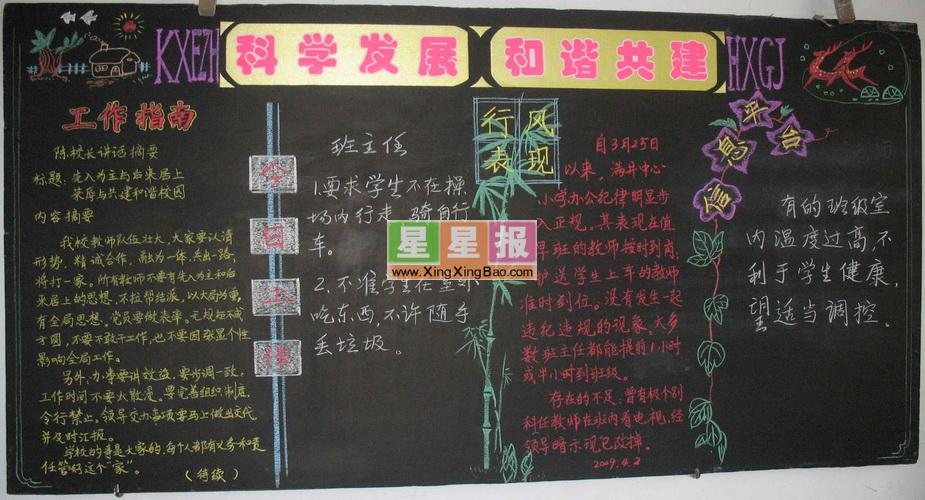 KXFZH
科学发展
和谐共建
HXGJ
工作指南
陈校长讲话摘要
标题:先入为主与后来居上
荣辱与共建和谐校园
内容摘要
我校教师队伍壮大,大家要认清
形势,精诚合作,融为一体,共出一路,
将打一家。所有教师不要有先入为主和后
来居上的思想,不拉帮结派,以大局为重,
有全局思想。党员要做表率。无规矩不成
方圆,不要不敢干工作,也不要因张显个性
影响全局工作。
另外,办事要讲效益,要步调一致,
工作时间不要太散漫。要完善组织制度,
令行禁止。领导交办每项要马上做出交代
并及时汇报。
学校的事是大家的,每个人都有义务和责
任管好这个"家"。
(待续)
今日工作
班主任
1.要求学生不在操
场内行走、骑自行
车。
2.不准学生在室外
吃东西,不许随手
丢垃圾。
星星报
www.XingXingBao.com
行风
表现
自3月25日
以来,满井中心
小学办公纪律明显步
入正规。其表现在值
早班的教师按时到岗;
护送学生上车的教师
准时到位。没有发生一起
违纪违规的现象。大多
数班主任都能提前1小时
或半小时到班级。
存在的不足:曾有极个别
科任教师在班内看电视,经
领导暗示现已改掉。
2009.4.2
信息平台
有的班级室
内温度过高,不
利于学生健康,
望适当调控。